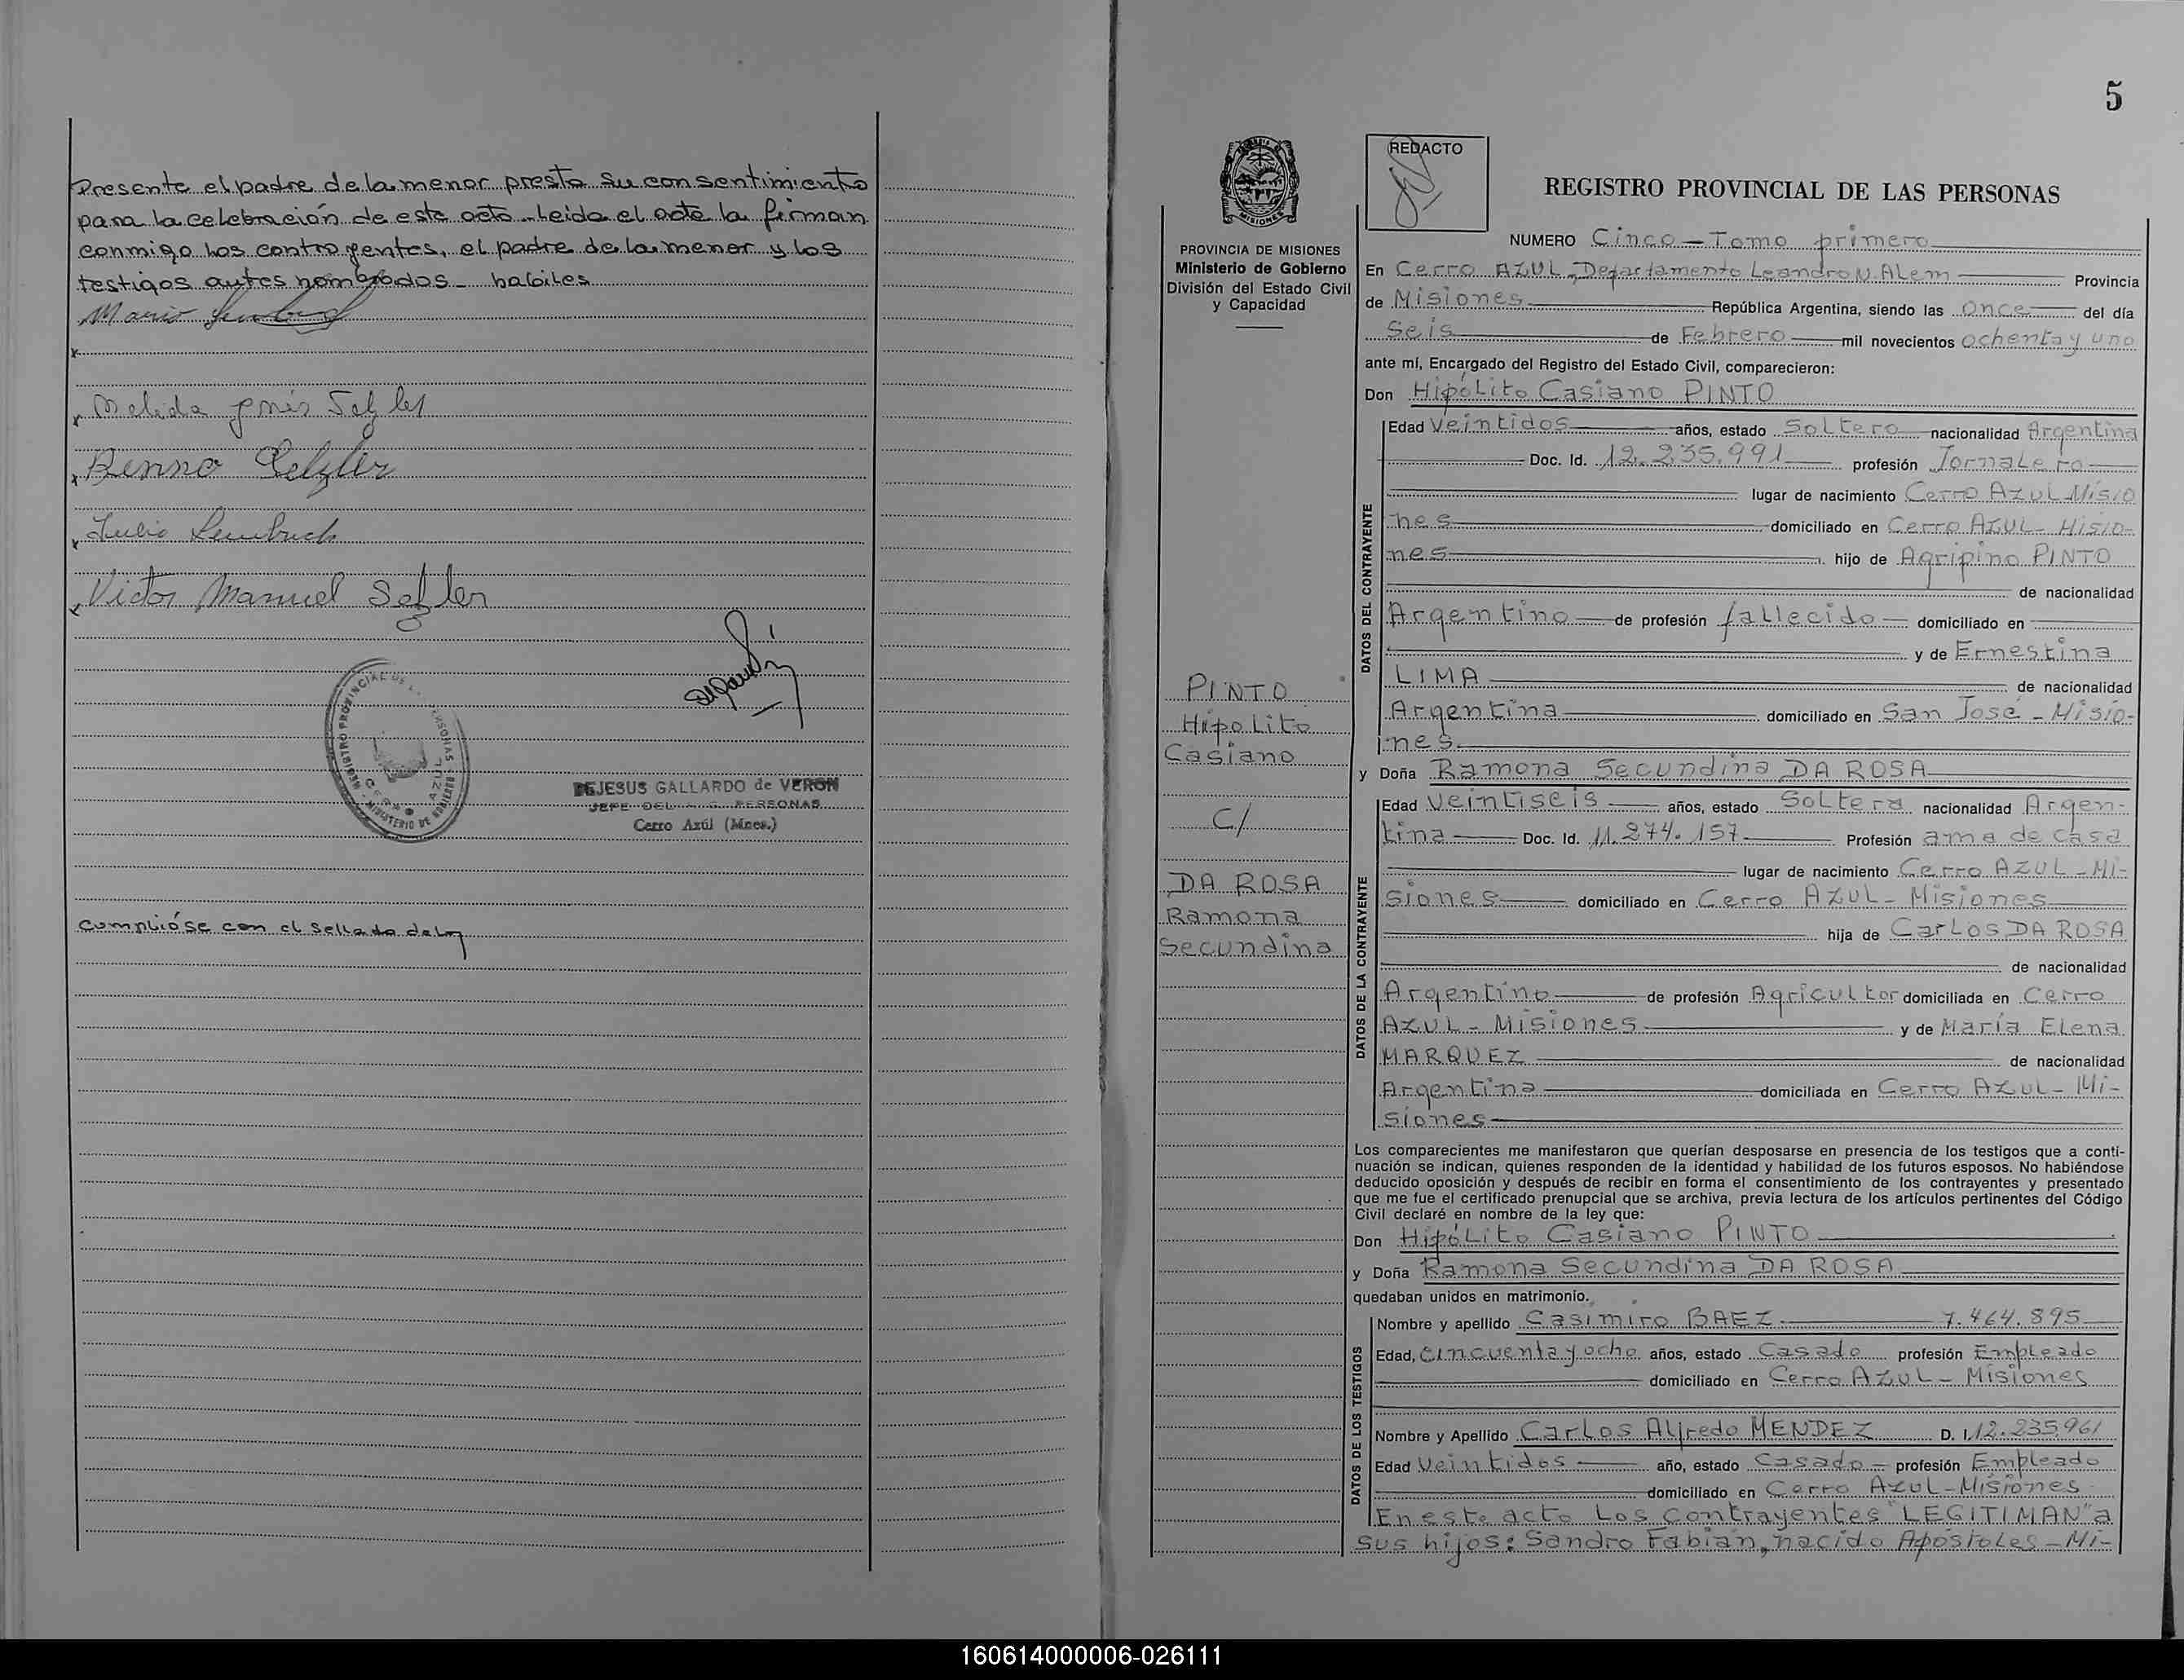 Presente el padre de la menor presta su consentimiento
para la celebración de este acto - Leida el acta la firman
conmigo los contrayentes, el padre de la menor y los
testigos antes nombrados - habiles
Mario
x
x Melida Ynés Setzler
x Benno Setzler
x Julio Lembuch
x Victor Manuel Setzler
CERRO AZUL
DEJESUS GALLARDO de VERON
JEFE DEL PERSONAS
Cerro Azúl (Mnes.)
Cumplióse con el sellado de ley
5
REDACTO
REGISTRO PROVINCIAL DE LAS PERSONAS
PROVINCIA DE MISIONES
Ministerio de Gobierno
División del Estado Civil
y Capacidad
MISIONES
NUMERO Cinco - Tomo primero
En Cerro AZUL, Departamento Leandro N. Alem Provincia
de Misiones República Argentina, siendo las Once del día
Seis de Febrero mil novecientos ochenta y uno
ante mí, Encargado del Registro del Estado Civil, comparecieron:
Don Hipólito Casiano PINTO
Edad Veintidos años, estado Soltero nacionalidad Argentina
Doc. Id. 12.235.991 profesión Jornalero
lugar de nacimiento Cerro AZUL Misio
nes domiciliado en Cerro AZUL - Misio-
nes hijo de Agripino PINTO
de nacionalidad
Argentino de profesión fallecido domiciliado en
y de Ernestina
LIMA de nacionalidad
Argentina domiciliado en San José - Misio-
nes.
DATOS DEL CONTRAYENTE
PINTO
Hipolito
Casiano
C/
DA ROSA
Ramona
Secundina
y Doña Ramona Secundina DA ROSA
Edad Veintiseis años, estado Soltera nacionalidad Argen-
tina Doc. Id. 11.274.157 Profesión ama de casa
lugar de nacimiento Cerro AZUL - Mi-
siones domiciliado en Cerro AZUL - Misiones
hija de Carlos DA ROSA
de nacionalidad
Argentino de profesión Agricultor domiciliada en Cerro
AZUL - Misiones y de María Elena
MARQUEZ de nacionalidad
Argentina domiciliada en Cerro AZUL - Mi-
siones
DATOS DE LA CONTRAYENTE
Los comparecientes me manifestaron que querían desposarse en presencia de los testigos que a conti-
nuación se indican, quienes responden de la identidad y habilidad de los futuros esposos. No habiéndose
deducido oposición y después de recibir en forma el consentimiento de los contrayentes y presentado
que me fue el certificado prenupcial que se archiva, previa lectura de los artículos pertinentes del Código
Civil declaré en nombre de la ley que:
Don Hipólito Casiano PINTO
y Doña Ramona Secundina DA ROSA
quedaban unidos en matrimonio.
Nombre y apellido Casimiro BAEZ 7.464.895
Edad, Cincuenta y ocho años, estado Casado profesión Empleado
domiciliado en Cerro AZUL - Misiones
Nombre y Apellido Carlos Alfredo MENDEZ D. I. 12.235.961
Edad Veintidos año, estado Casado - profesión Empleado
domiciliado en Cerro AZUL - Misiones
DATOS DE LOS TESTIGOS
En este acto Los contrayentes "LEGITIMAN" a
sus hijos: Sandro Fabián, nacido Apóstoles - Mi-
160614000006-026111